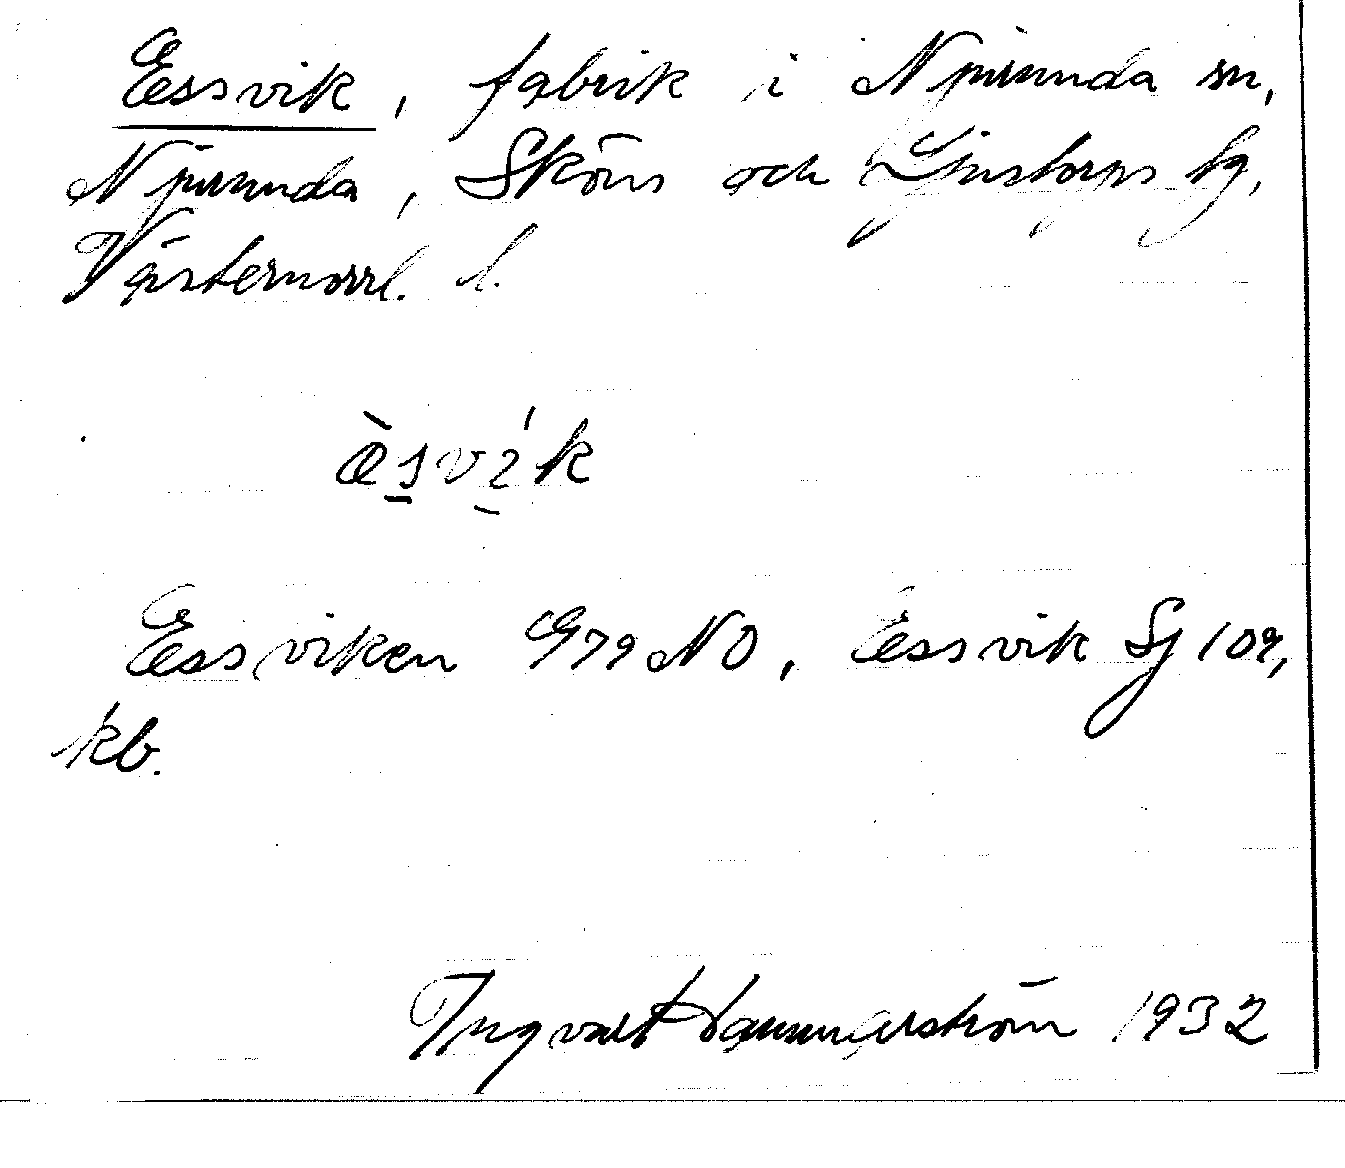 Essvik, fabrik i Njurunda sn,
Njurunda, Sköns och Ljustorps tg,
Västernorrl. l.
æ̀sví̱k
Essviken G79 NO, Essvik Sj 109,
kb.
Ingvart Hammarström 1932